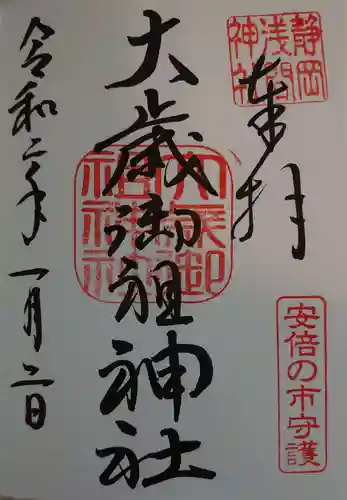 奉拝
静岡
浅間
神社
大歳御祖神社
大歳御
祖神社
安倍の市守護
令和二年一月二日